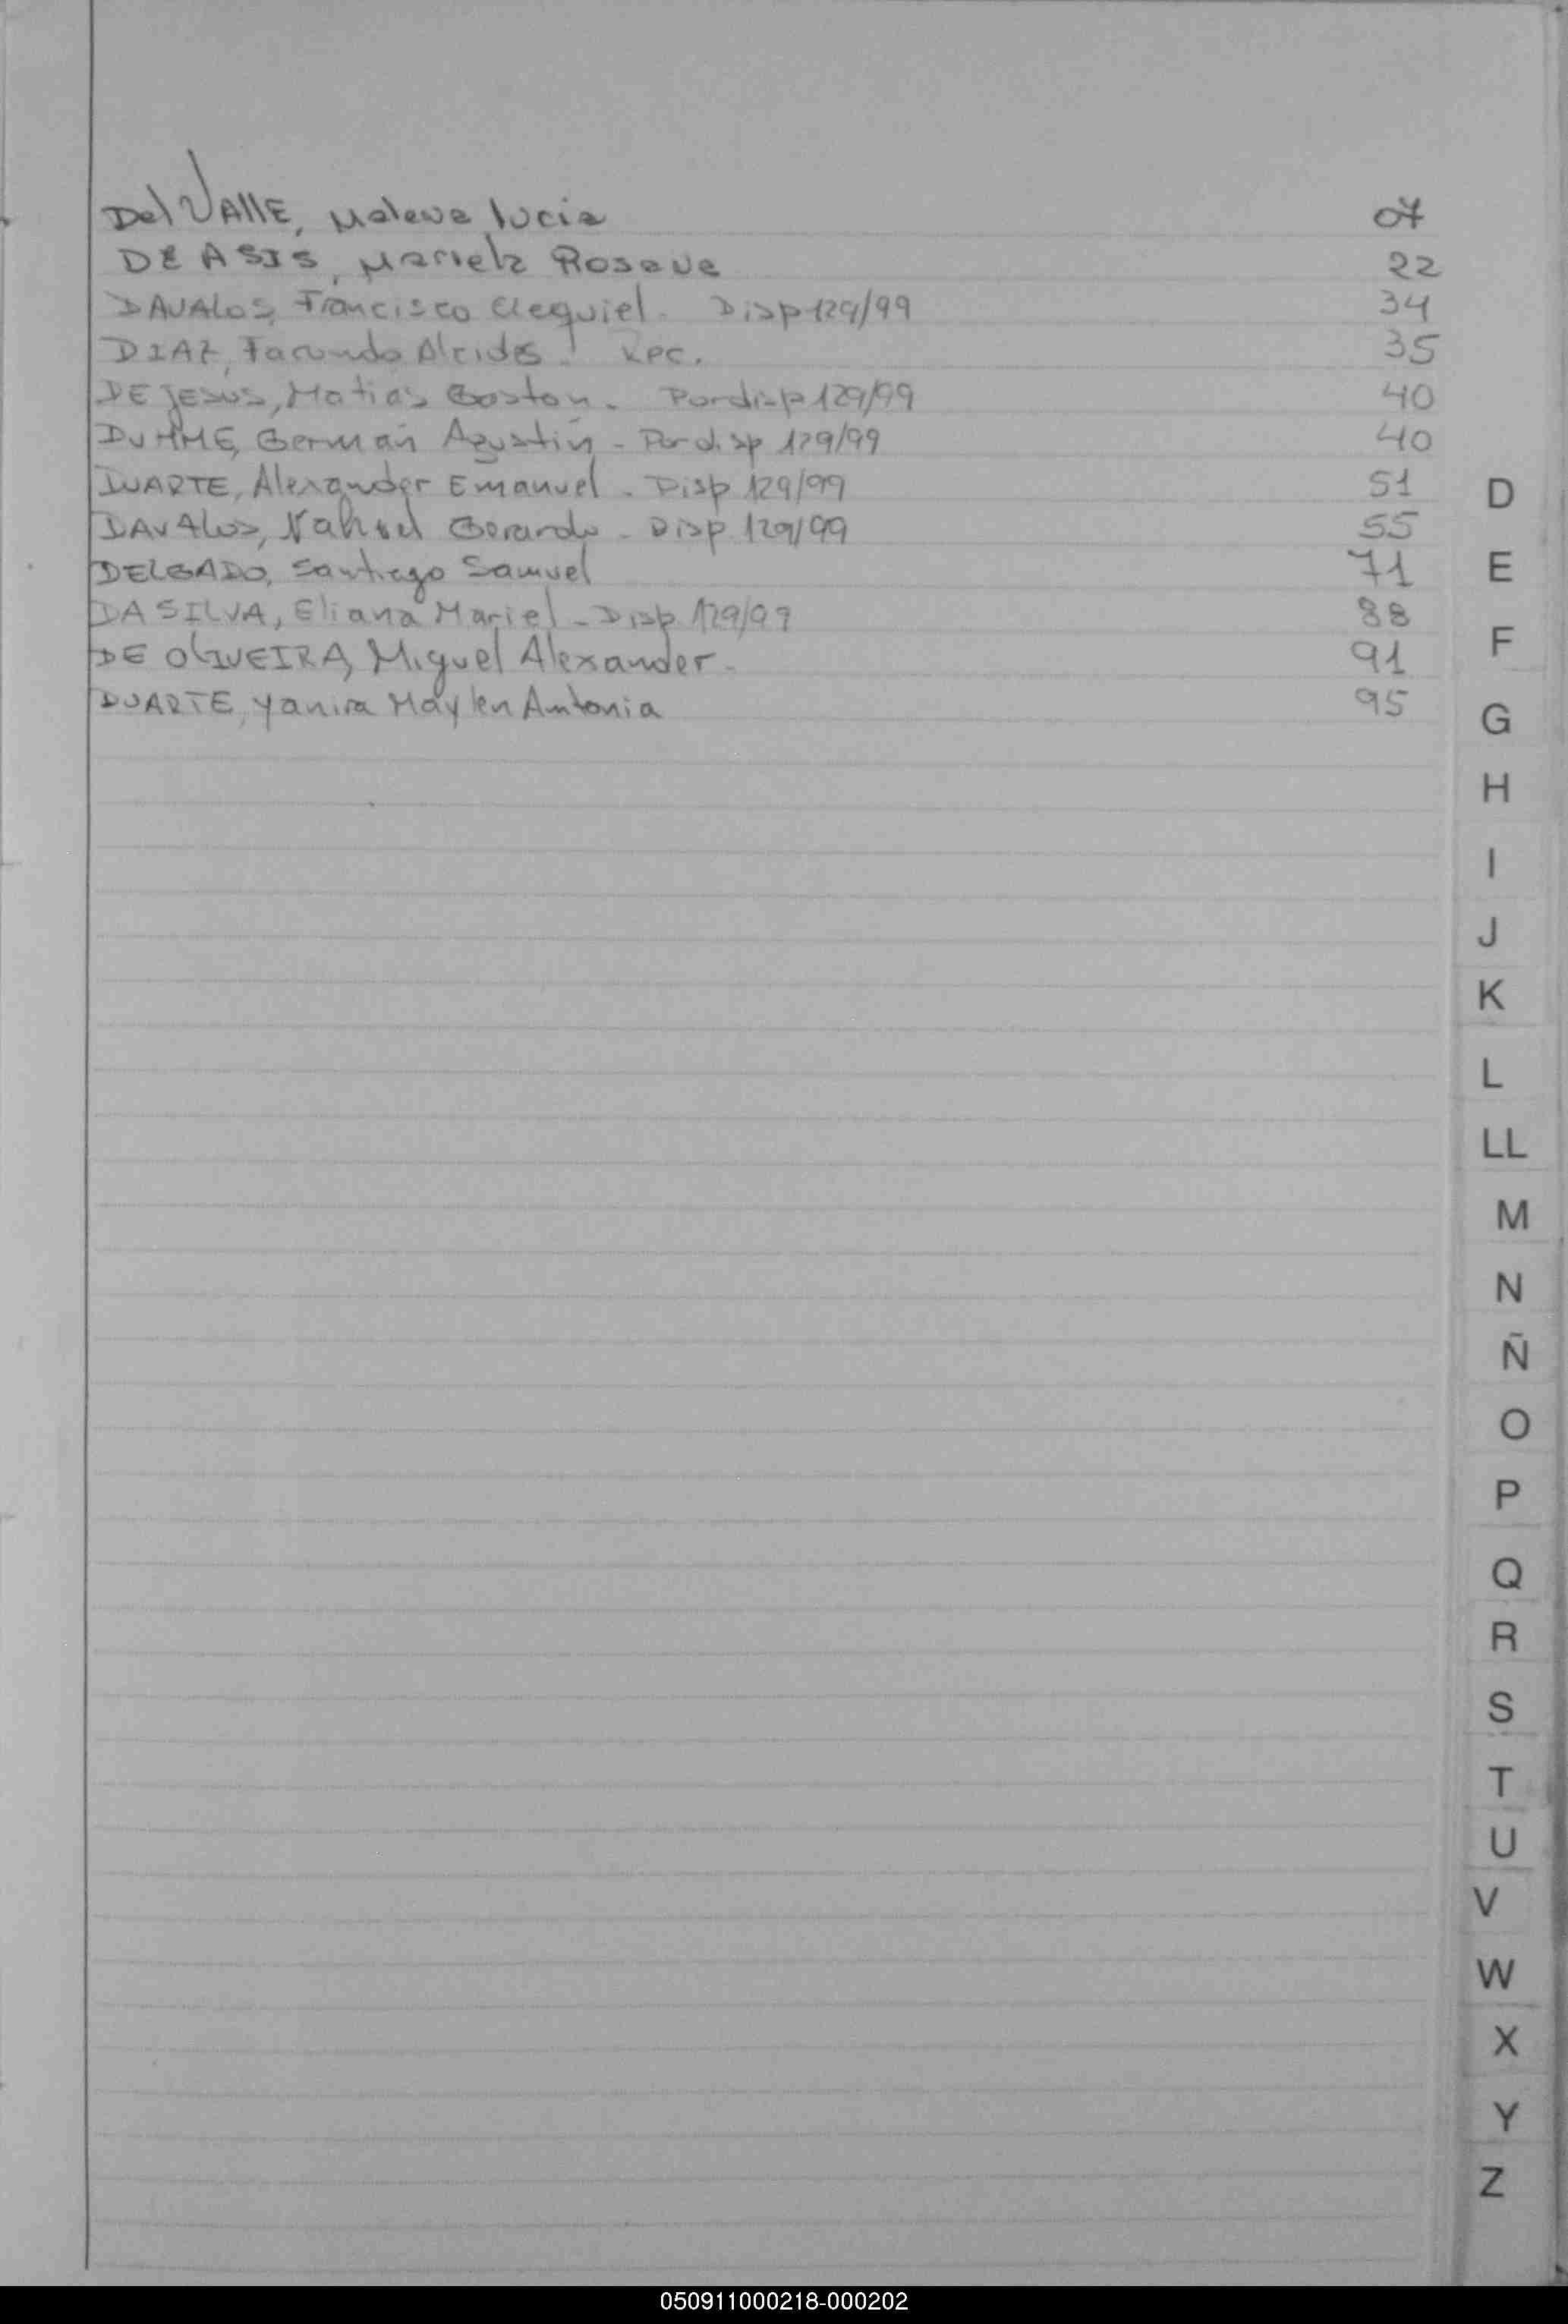 Del VAllE, Malena lucia 07
DE ASIS, Mariela Rosana 22
DAVAlos, Francisco Elequiel. Disp 129/99 34
DIAZ, Facundo Alcides. Rec. 35
DE JESUS, Matias Gaston. Por disp 129/99 40
DUMME, Germán Agustín - Por disp 129/99 40
DUARTE, Alexander Emanuel. Disp 129/99 51
DAVAlos, Nahuel Gerardo - Disp. 129/99 55
DELGADO, Santiago Samuel 71
DA SILVA, Eliana Mariel - Disp 129/99 88
DE OlIVEIRA, Miguel Alexander. 91
DUARTE, Yanira Maylen Antonia 95
D
E
F
G
H
I
J
K
L
LL
M
N
Ñ
O
P
Q
R
S
T
U
V
W
X
Y
Z
050911000218-000202